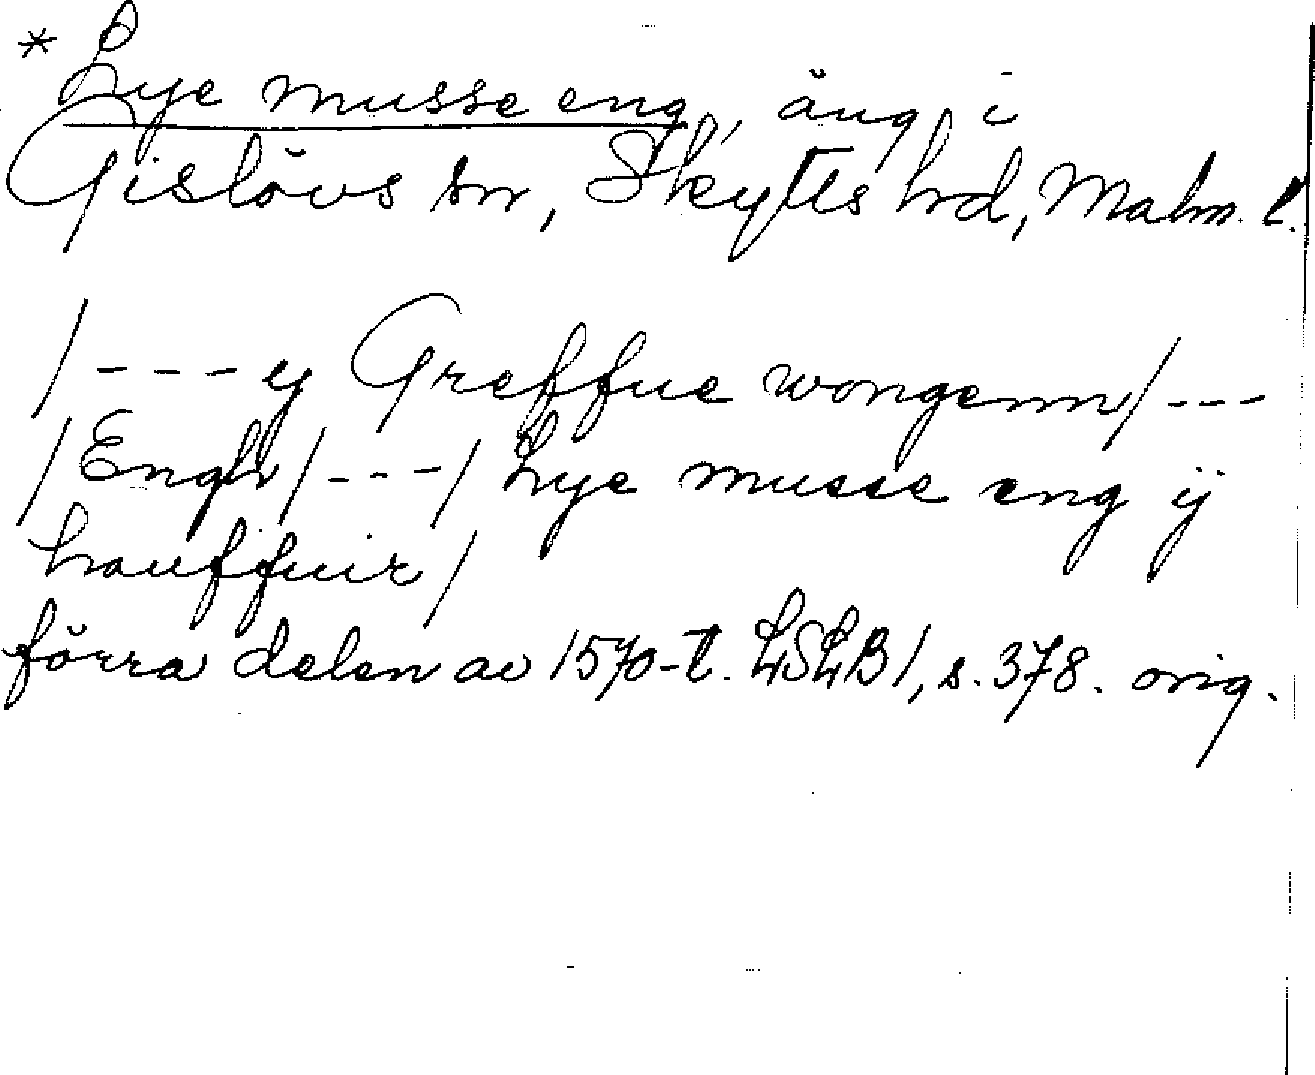 * Lye musse eng, äng i
Gislövs sn, Skytts hd, Malm. l.
/---ÿ Greffue wongenn/---
/Engh/---/ Lye musse eng ÿ
hauffuir/
förra delen av 1570-t. LSLB1, s. 378. orig.